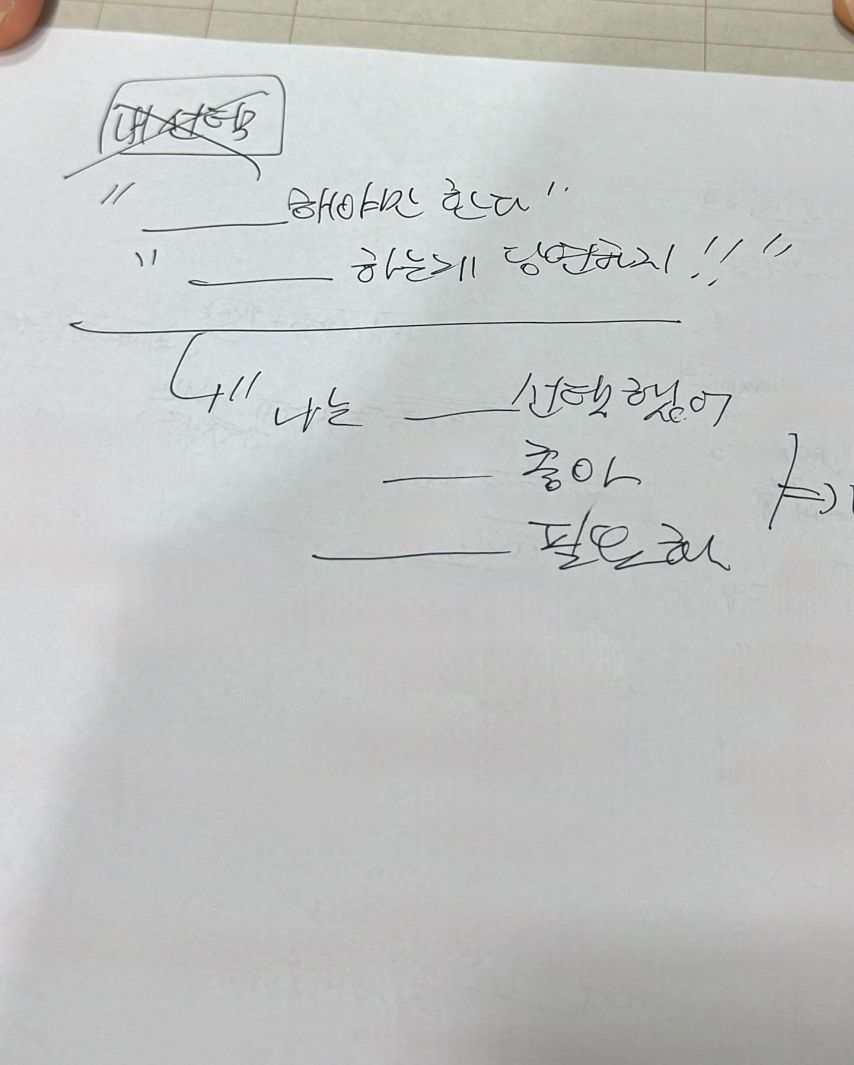 내 선택
"______해야만 한다"
"______ 하는게 당연하지!!"
"나는 ____선택했어
____ 좋아
______ 필요해